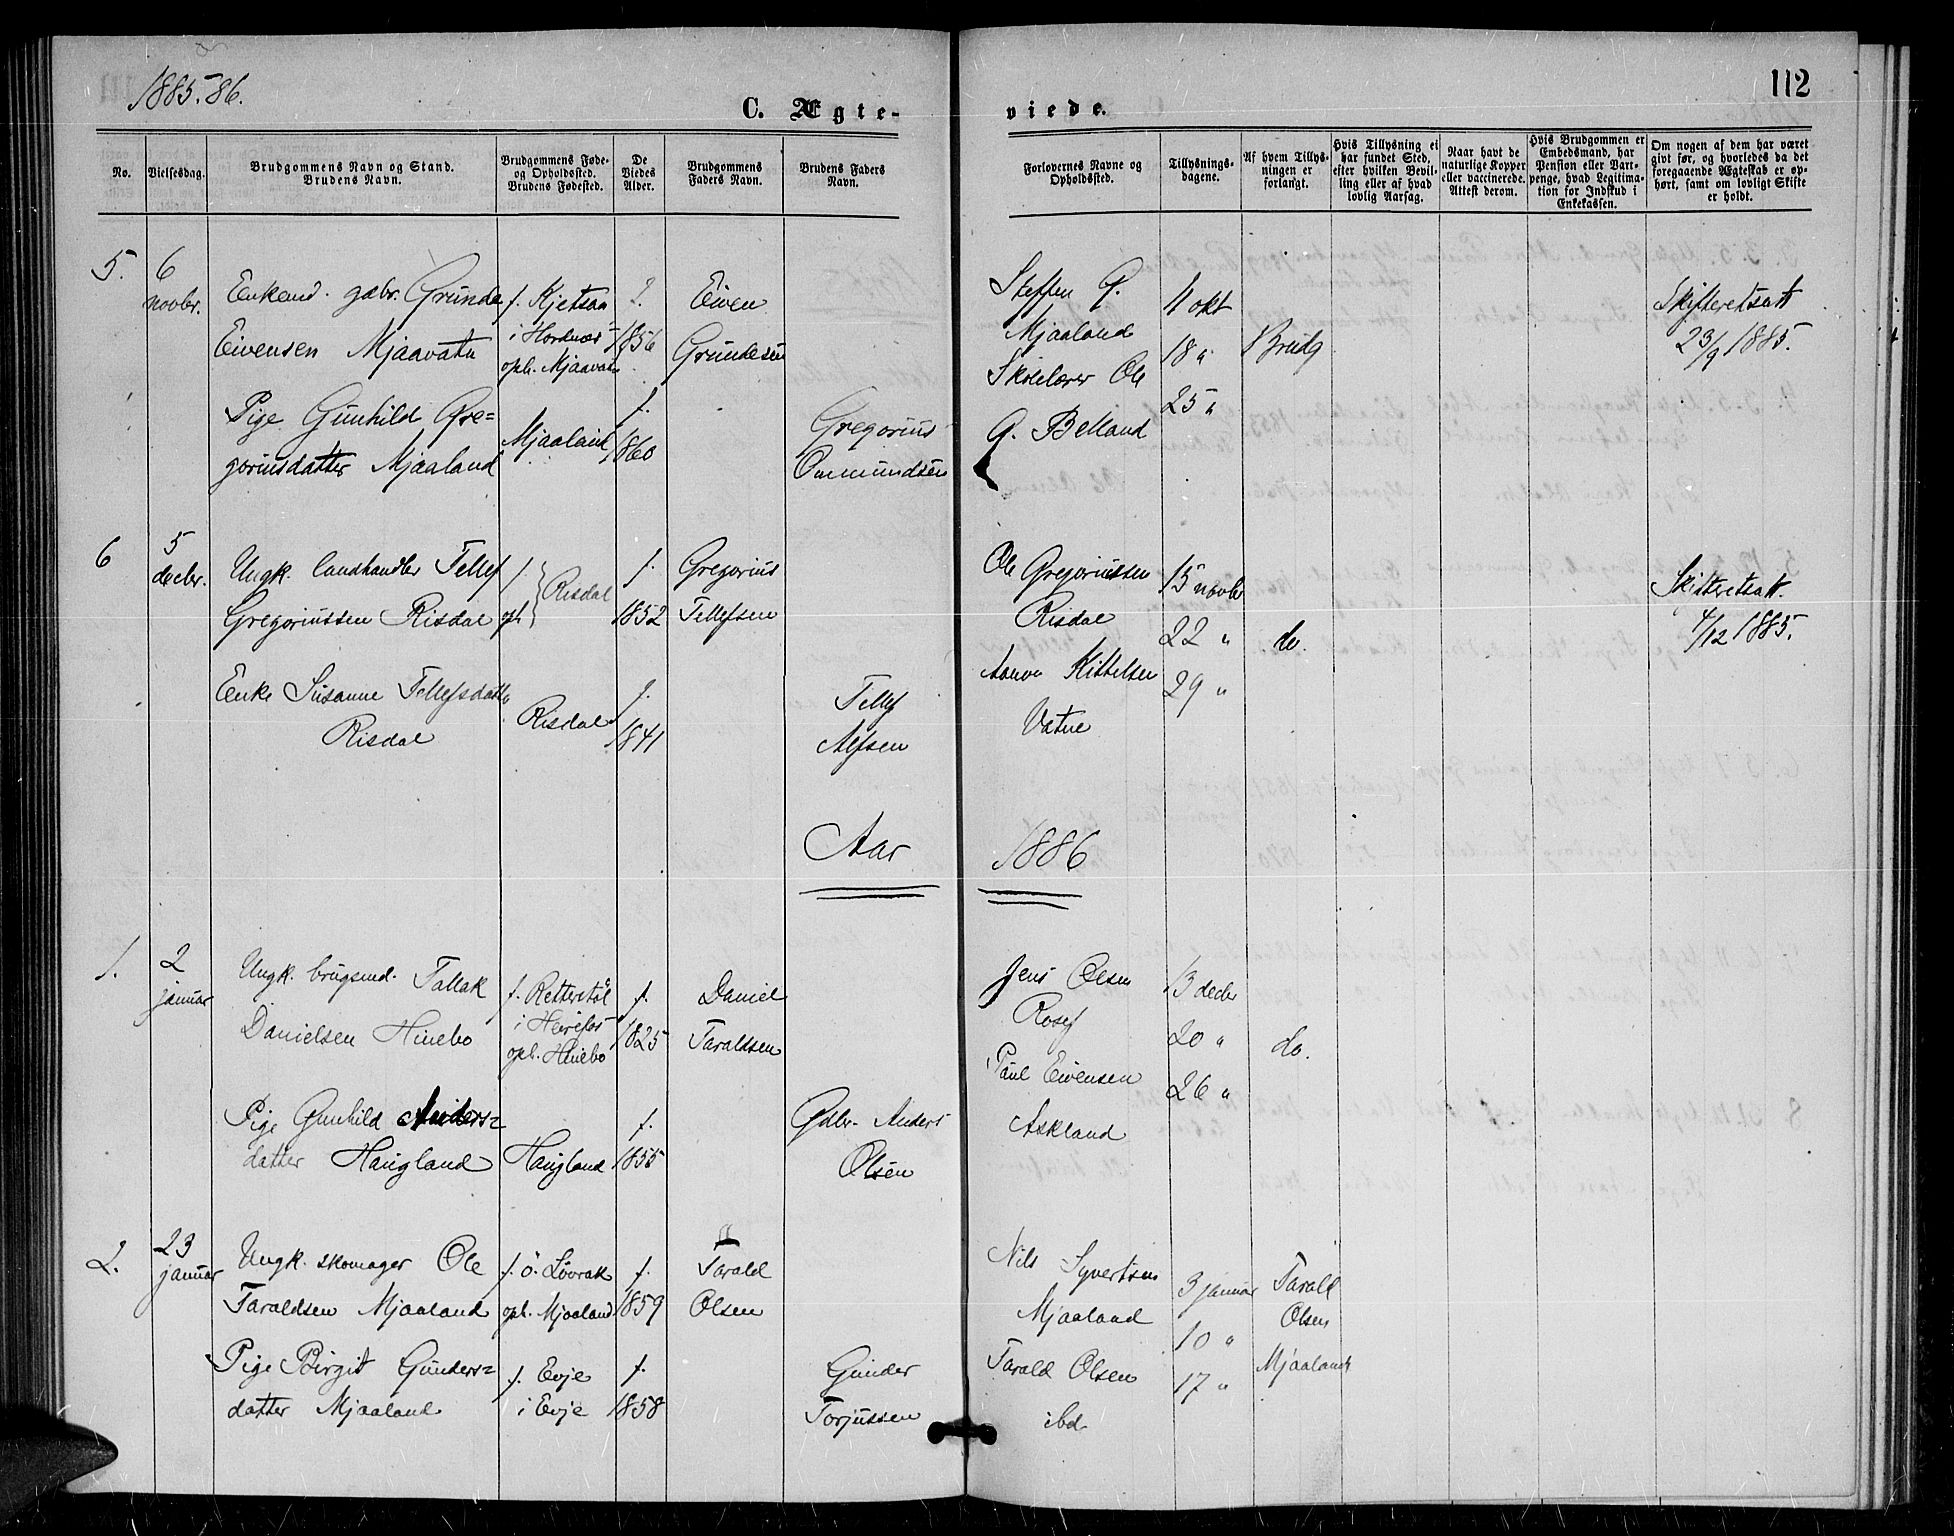 1885.86.
112
C. Ægte-
viede.
No.
Vielsesdag.
Brudgommens Navn og Stand.
Brudens Navn.
Brudgommens Føde-
og Opholdssted.
Brudens Fødested.
De
Viedes
Alder.
Brudgommens
Faders Navn.
Brudens Faders
Navn.
Forlovernes Navne og
Opholdssted.
Tillysnings-
dagene.
Af hvem Tillys-
ningen er
forlangt.
Hvis Tillysning ei
har fundet Sted,
efter hvilken Bevil-
ling eller af hvad
lovlig Aarsag.
Naar havt de
naturlige Kopper
eller vaccinerede.
Attest derom.
Hvis Brudgommen er
Embedsmand, har
Pension eller Vart-
penge, hvad Legitima-
tion for Indskud i
Enkekassen.
Om nogen af dem har været
givt før, og hvorledes da det
foregaaende Ægteskab er op-
hørt, samt om lovligt Skifte
er holdt.
5.
6
novbr.
Enkemd. gbr. Grunde
Eivensen Mjaavatn
f. Kjetsaa
i Hordnæs
opl. Mjaavatn
f.
1856
Eiven
Grundesen
Pige Gunhild Gre=
goriusdatter Mjaaland
Mjaaland
f.
1860
Gregorius
Onmundsen
Steffen G.
Mjaaland
Skolelærer Ole
G. Belland
11 okt
18 "
25 "
Brudg
Skifteretsatt
23/9 1885.
6
5
decbr.
Ungk. landhandler Tellef
Gregoriussen Risdal
f.
opl
Risdal
f.
1852
Gregorius
Tellefsen
Enke Susanne Tellefsdatter
Risdal
Risdal
f.
1841
Tellef
Alfsen
Ole Gregoriussen
Risdal
Aanon Kittelsen
Vatne
15 novbr
22 "
29 "
do.
Skifteretsatt.
4/12 1885.
Aar 1886
1.
2
januar
Ungk. brugsmd. Tallak
Danielsen Hinebo
f. Retterstøl
i Herefos
opl. Hinebo
f.
1825
Daniel
Taraldsen
Pige Gunhild Anders=
datter Haugland
Haugland
f.
1855
Gdbr. Anders
Olsen
Jens Olsen
Rosef
Paul Eivensen
Askland
13 decbr
20 "
26 "
do.
2.
23
januar
Ungk. skomager Ole
Taraldsen Mjaaland
f. ö. Lövrak
opl. Mjaaland
f.
1859
Tarald
Olsen
Pige Birgit Gunders=
datter Mjaaland
f. Evje
i Evje
f.
1858
Gunder
Torjussen
Nils Syvertsen
Mjaaland
Tarald Olsen
ibd
3 januar
10 "
17 "
Tarald
Olsen
Mjaaland